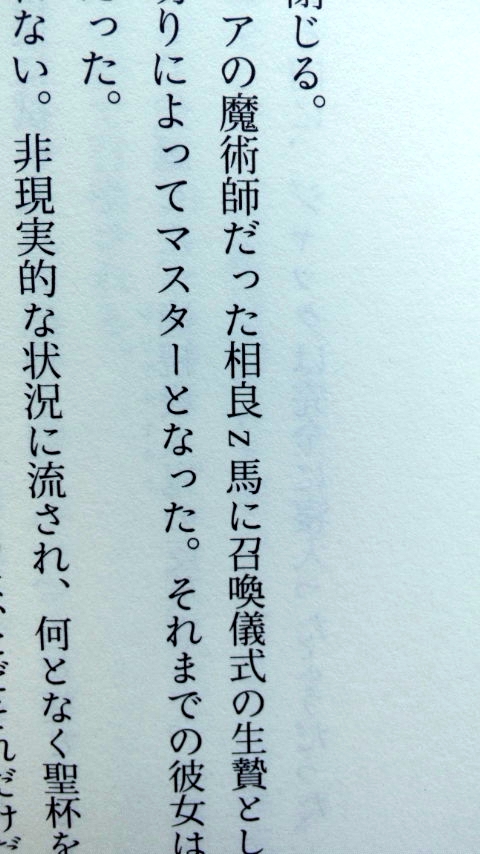 じる。
アの魔術師だった相良z馬に召喚儀式の生贄とし
りによってマスターとなった。それまでの彼女は
った。
ない。非現実的な状況に流され、何となく聖杯を
それだけ